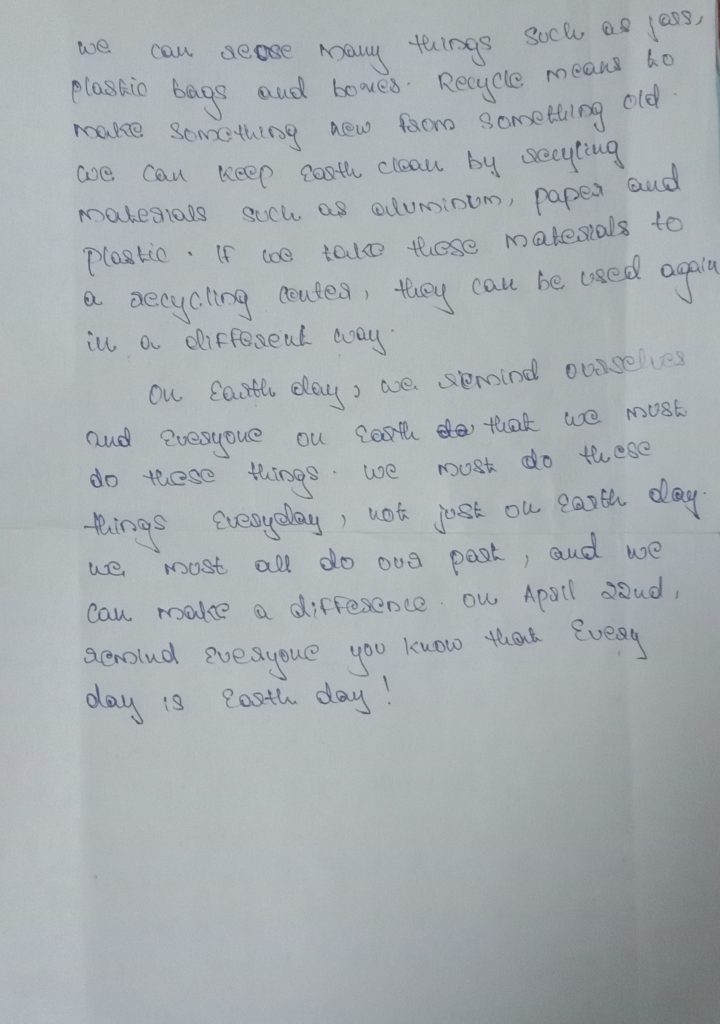 we can reuse many things such as jars,
plastic bags and boxes. Recycle means to
make something new from something old.
we can keep Earth clean by recyling
materials such as aluminum, paper and
plastic. If we take these materials to
a recycling center, they can be used again
in a different way.
On Earth day, we remind ourselves
and everyone on Earth that we must
do these things. we must do these
things everyday, not just on Earth day.
we must all do our part, and we
can make a difference. on April 22nd,
remind everyone you know that Every
day is Earth day!